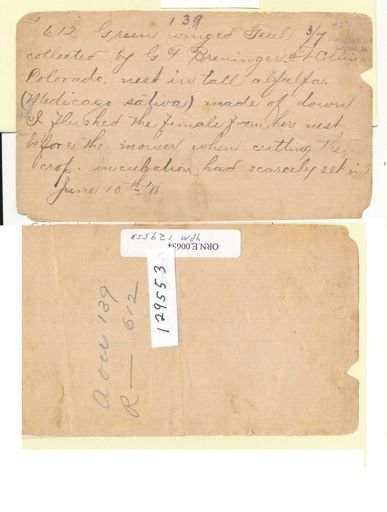 139
612 Green winged Teal 3/7
collected by G F Breninger Ft Collins
Colorado. nest in tall alfalfa.
(Medicago sativa) made of down
I flushed the female from her nest
before the mower when cutting the
crop. incubation had scarcely set in
June 10th '8
ORN.E.00654
YPM 129553
129553
AOU 139
R — 612